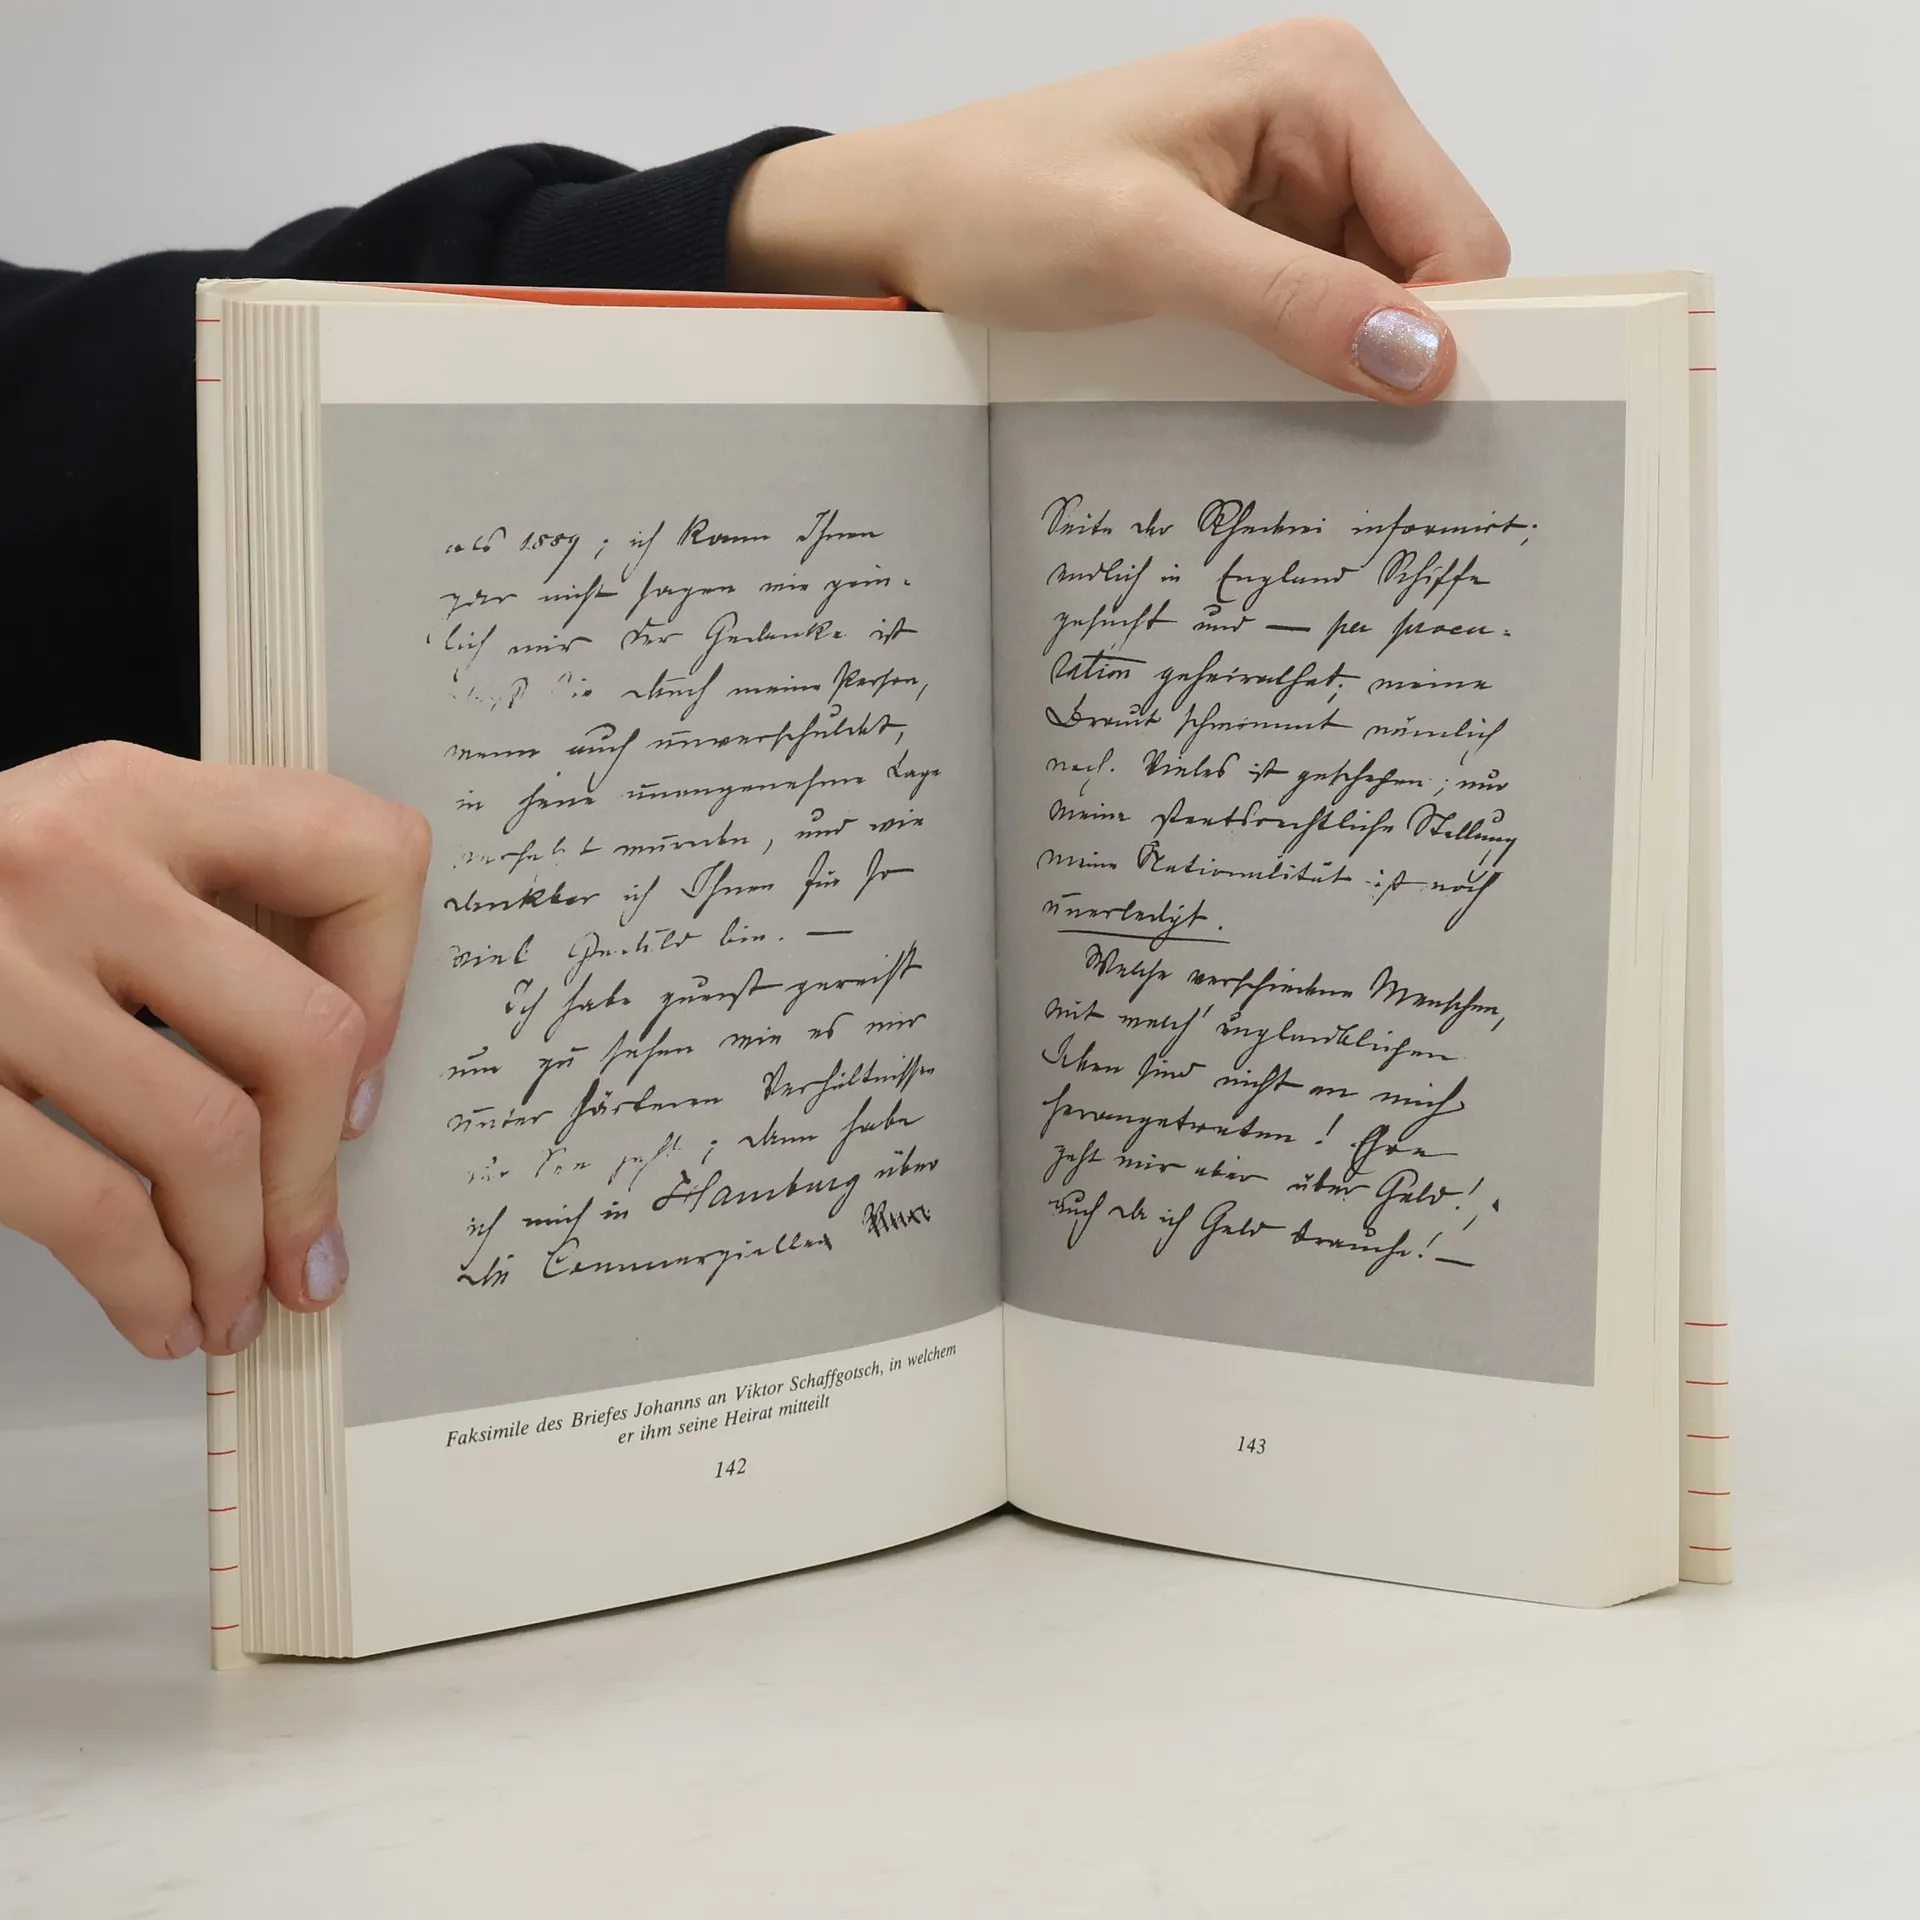 als 1889; ich kann Ihnen
gar nicht sagen wie pein-
lich mir der Gedanke ist
Sie durch meine Person,
wenn auch unverschuldet,
in eine unangenehme Lage
versetzt wurden, und wie
dankbar ich Ihnen für so
viel Geduld bin. —
Ich habe zuerst gereist
um zu sehen wie es mir
unter härteren Verhältnissen
zur See geht; dann habe
ich mich in Hamburg über
die Commerziellen
Seite der Rhederei informirt;
endlich in England Schiffe
gesucht und — per procu-
ration geheirathet; meine
Braut schwimmt nämlich
nach. Vieles ist geschehen; nur
meine staatsrechtliche Stellung
meine Nationalität ist noch
unerledigt.
Welche verschiedene Menschen,
mit welch' unglaublichen
Ideen sind nicht an mich
herangetreten! Ehre
geht mir aber über Geld!,
auch da ich Geld brauche! —
Faksimile des Briefes Johanns an Viktor Schaffgotsch, in welchem
er ihm seine Heirat mitteilt
142
143